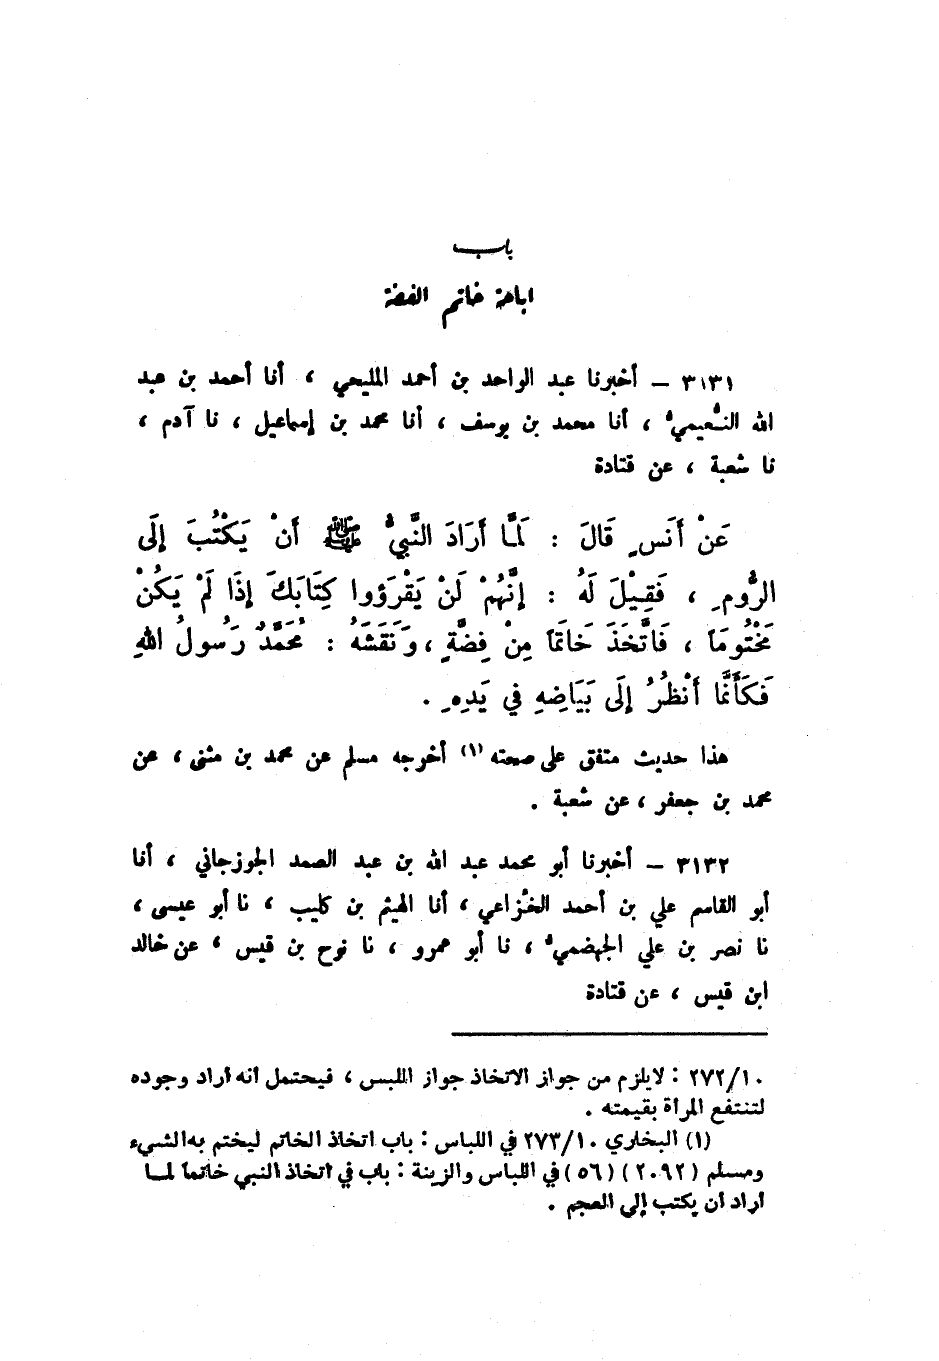 باب
اباحة خاتم الفضة
٣١٣١ – أخبرنا عبد الواحد بن أحمد المليحي ، أنا أحمد بن عبد
الله النُّعيميُّ ، أنا محمد بن يوسف ، أنا محمد بن إسماعيل ، نا آدم ،
نا شعبة ، عن قتادة
عَنْ أَنَسٍ قَالَ : لَمَّا أَرَادَ النَّبِيُّ ﷺ أَنْ يَكْتُبَ إِلَى
الرُّومِ ، فَقِيْلَ لَهُ : إِنَّهُمْ لَنْ يَقْرَؤُوا كِتَابَكَ إِذَا لَمْ يَكُنْ
مَخْتُومًا ، فَاتَّخَذَ خَاتَمًا مِنْ فِضَّةٍ ، وَنَقَشَهُ : مُحَمَّدٌ رَسُولُ اللهِ
فَكَأَنَّمَا أَنْظُرُ إِلَى بَيَاضِهِ فِي يَدِهِ .
هذا حديث متفق على صحته (١) أخرجه مسلم عن محمد بن مثنى ، عن
محمد بن جعفر ، عن شعبة .
٣١٣٢ – أخبرنا أبو محمد عبد الله بن عبد الصمد الجوزجاني ، أنا
أبو القاسم علي بن أحمد الخُزاعي ، أنا الهيثم بن كليب ، نا أبو عيسى ،
نا نصر بن علي الجهضميُّ ، نا أبو عمرو ، نا نوح بن قيس ، عن خالد
ابن قيس ، عن قتادة
٢٧٢/١٠ : لا يلزم من جواز الاتخاذ جواز اللبس ، فيحتمل أنه أراد وجوده
لتنتفع المرأة بقيمته .
(١) البخاري ٢٧٣/١٠ في اللباس : باب اتخاذ الخاتم ليختم به الشيء
ومسلم (٢٠٩٢) (٥٦) في اللباس والزينة : باب في اتخاذ النبي خاتماً لمـا
أراد أن يكتب إلى العجم .